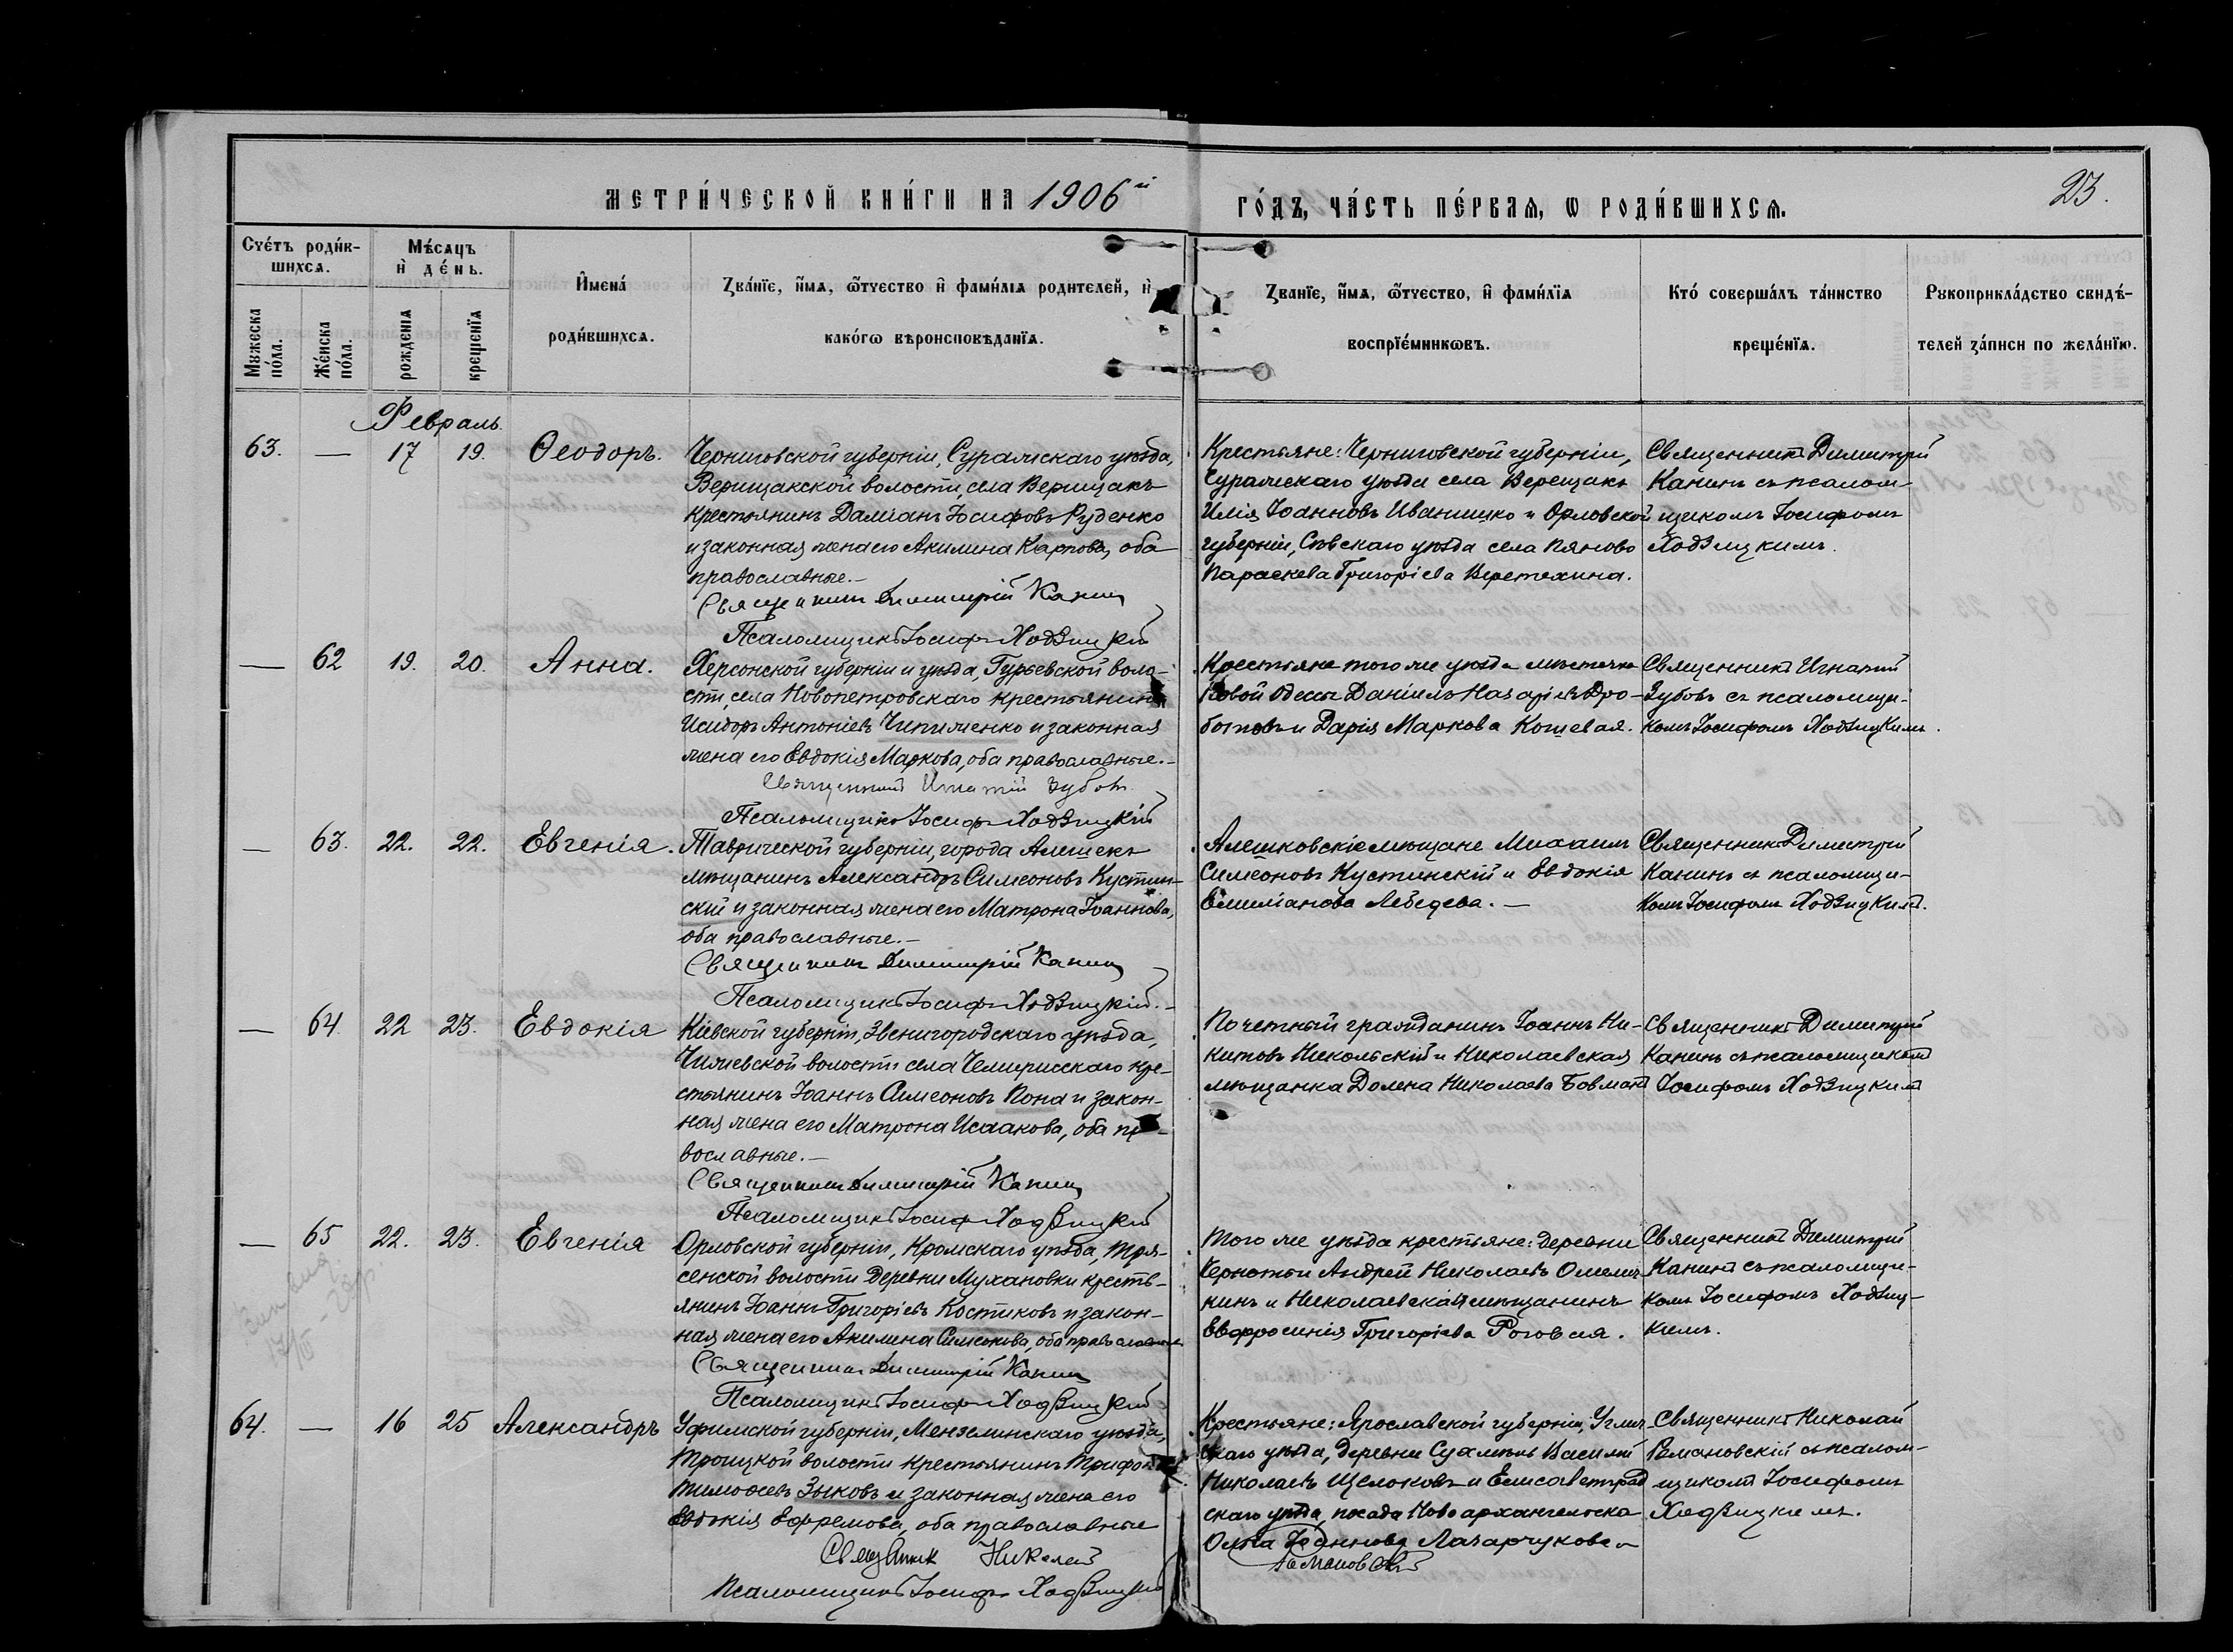 МЕТРИ́ЧЕСКОЙ КНИ́ГИ НА 1906й ГО́ДЪ, ЧА́СТЬ ПЕ́РВАЯ, Ѡ РОДИ́ВШИХСЯ.
23.
Сче́тъ роди́в-
шихся.
Мѣ́сяцъ
и де́нь.
Мꙋжеска по́ла.
Же́нска по́ла.
рожденія
крещенїя
Имена́
роди́вшихся.
Зва́нїе, и́мя, ѻ҆́тчество и҆ фами́лїя родителей, и҆
како́гѡ вѣроисповѣданїя.
Зва́нїе, и́мя, ѻ҆́тчество, и҆ фами́лїя
воспрїе́мникѡвъ.
Кто́ соверша́лъ та́инство
креще́нїя.
Рꙋкоприкла́дство свидѣ́-
телей за́писи по жела́нїю.
Февраль
63. — 17 19. Ѳеодоръ.
Черниговской губерніи, Суражскаго уѣзда,
Верищакской волости, села Верищакъ
крестьянинъ Даміанъ Іосифовъ Руденко
и законная жена его Акилина Карпова, оба
православные.—
Священникъ Димитрій Канинъ
Псаломщикъ Іосифъ Ходзицкій
Крестьяне: Черниговской губерніи,
Суражскаго уѣзда села Верещакъ
Илія Іоанновъ Иванишко и Орловской
губерніи, Сѣвскаго уѣзда села Пяново
Параскева Григоріева Веретехина.
Священникъ Димитрій
Канинъ съ псалом-
щикомъ Іосифомъ
Ходзицкимъ.
— 62 19. 20. Анна.
Херсонской губерніи и уѣзда, Гурьевской воло-
сти, села Новопетровскаго крестьянинъ
Исидоръ Антоніевъ Чипиженко и законная
жена его Евдокія Маркова, оба православные.—
Священникъ Игнатій Зубовъ
Псаломщикъ Іосифъ Ходзицкій
Крестьяне того же уѣзда мѣстечка
Новой Одессы Даніилъ Назаріевъ Дро-
ботовъ и Дарія Маркова Кошевая.
Священникъ Игнатий
Зубовъ съ псаломщи-
комъ Іосифомъ Ходзицкимъ.
— 63. 22. 22. Евгенія.
Таврической губерніи, города Алешекъ
мѣщанинъ Александръ Симеоновъ Кустин-
скій и законная жена его Матрона Іоаннова,
оба православные.—
Священникъ Димитрій Канинъ
Псаломщикъ Іосифъ Ходзицкій.—
Алешковскіе мѣщане Михаилъ
Симеоновъ Кустинскій и Евдокія
Емиліанова Лебедева.—
Священникъ Димитрій
Канинъ съ псаломщи-
комъ Іосифомъ Ходзицкимъ.
— 64. 22 23. Евдокія
Кіевской губерніи, Звенигородскаго уѣзда,
волости села кре-
стьянинъ Іоаннъ Симеоновъ Пона и закон-
ная жена его Матрона Исаакова, оба пра-
вославные.—
Священникъ Димитрій Канинъ
Псаломщикъ Іосифъ Ходзицкій
Почетный гражданинъ Іоаннъ Ни-
китовъ Никольскій и Николаевская
мѣщанка Домна Николаева
Священникъ Димитрій
Канинъ съ псаломщикомъ
Іосифомъ Ходзицкимъ
— 65 22. 23. Евгенія
Орловской губерніи, Кромскаго уѣзда,
волости деревни Мухановки кресть-
янинъ Іоаннъ Григоріевъ Костиковъ и закон-
ная жена его Акилина Симеонова, оба православные
Священникъ Димитрій Канинъ
Псаломщикъ Іосифъ Ходзицкій
Того же уѣзда крестьяне: деревни
Андрей Николаевъ
и Николаевская мѣщанинъ
Евфросинія Григоріева Роговая.
Священникъ Димитрій
Канинъ съ псаломщи-
комъ Іосифомъ Ходзиц-
кимъ.
64. — 16 25 Александръ
Уфимской губерніи, Мензелинскаго уѣзда,
Троицкой волости крестьянинъ Трифонъ
Тимоѳеевъ Зыковъ и законная жена его
Евдокія Ефремова, оба православные
Священник Николай Романовскій
Псаломщикъ Іосифъ Ходзицкій
Крестьяне: Ярославской губерніи, Углич-
скаго уѣзда, деревни Василій
Николаевъ Щелоковъ и Елисаветград
скаго уѣзда, посада Новоархангельска
Ольга Іоаннова Лазарчукова
Священникъ Николай
Романовскій съ псалом-
щикомъ Іосифомъ
Ходзицкимъ.